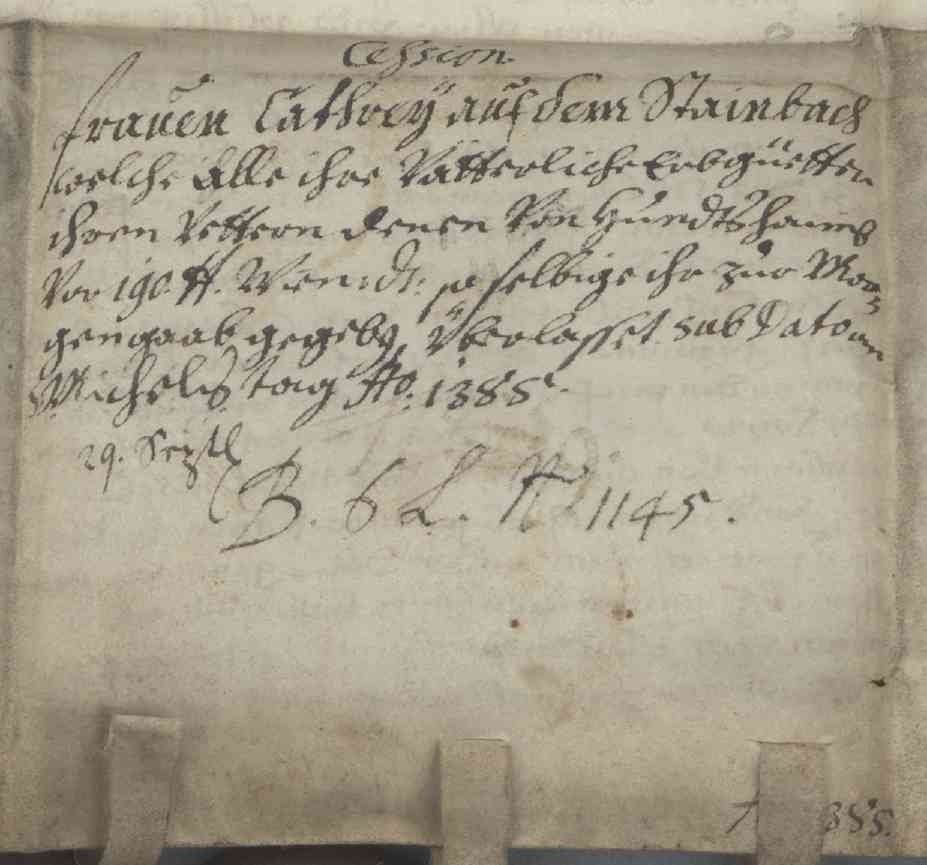 Cession.
Frauen Cathrey auf dem Stainbach
welche Alle ihre Vätterliche Erbgüetter
ihren Vettern denen Von Hundtshaims
Vor 190 ff. Wien: dt: so selbige ihr zur Mor=
gengaab gegeben, Überlasset. sub Dato am
Michelis tag Ao: 1385.
29. Septb
B. 6 L. N. 1145.
385.